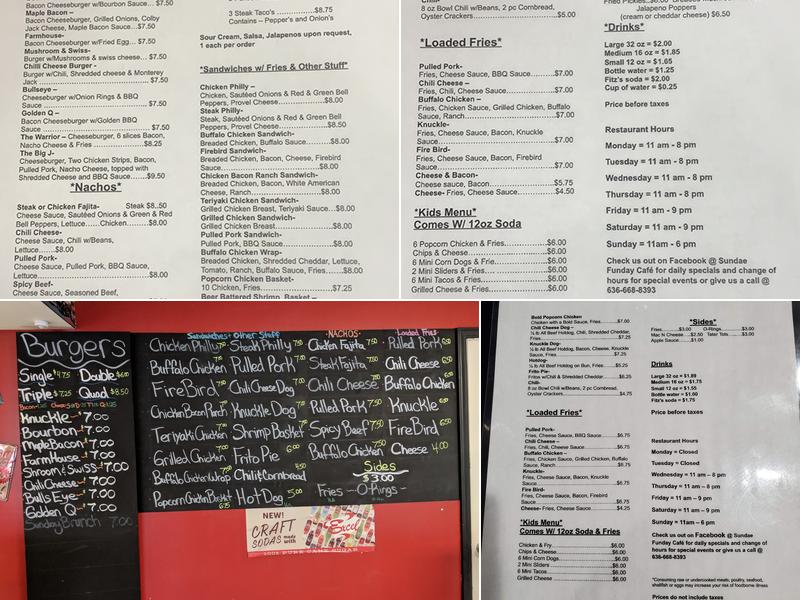 Bacon Cheeseburger w/Bourbon Sauce... $7.50
Maple Bacon –
Bacon Cheeseburger, Grilled Onions, Colby
Jack Cheese, Maple Bacon Sauce...$7.50
Farmhouse-
Bacon Cheeseburger w/Fried Egg... $7.50
Mushroom & Swiss-
Burger w/Mushrooms & swiss cheese... $7.50
Chilli Cheese Burger -
Burger w/Chili, Shredded cheese & Monterey
Jack ... $7.50
Bullseye –
Cheeseburger w/Onion Rings & BBQ
Sauce ... $7.50
Golden Q –
Bacon Cheeseburger w/Golden BBQ
Sauce ... $7.50
The Warrior – Cheeseburger, 6 slices Bacon,
Nacho Cheese & Fries ...$8.25
The Big J-
Cheeseburger, Two Chicken Strips, Bacon,
Pulled Pork, Nacho Cheese, topped with
Shredded Cheese and BBQ Sauce...$9.50
*Nachos*
Steak or Chicken Fajita- Steak $8..50
Cheese Sauce, Sautéed Onions & Green & Red
Bell Peppers, Lettuce......Chicken...$8.00
Chili Cheese-
Cheese Sauce, Chili w/Beans,
Lettuce...$8.00
Pulled Pork-
Cheese Sauce, Pulled Pork, BBQ Sauce,
Lettuce...$8.00
Spicy Beef-
Cheese Sauce, Seasoned Beef,
3 Steak Taco's ...$8.75
Contains – Pepper's and Onion's
Sour Cream, Salsa, Jalapenos upon request,
1 each per order
*Sandwiches w/ Fries & Other Stuff*
Chicken Philly –
Chicken, Sautéed Onions & Red & Green Bell
Peppers, Provel Cheese...$8.00
Steak Philly-
Steak, Sautéed Onions & Red & Green Bell
Peppers, Provel Cheese...$8.50
Buffalo Chicken Sandwich-
Breaded Chicken, Buffalo Sauce...$8.00
Firebird Sandwich-
Breaded Chicken, Bacon, Cheese, Firebird
Sauce...$8.00
Chicken Bacon Ranch Sandwich-
Breaded Chicken, Bacon, White American
Cheese, Ranch...$8.00
Teriyaki Chicken Sandwich-
Grilled Chicken Breast, Teriyaki Sauce...$8.00
Grilled Chicken Sandwich-
Grilled Chicken Breast...$8.00
Pulled Pork Sandwich-
Pulled Pork, BBQ Sauce...$8.00
Buffalo Chicken Wrap-
Breaded Chicken, Shredded Cheddar, Lettuce,
Tomato, Ranch, Buffalo Sauce, Fries...$8.00
Popcorn Chicken Basket-
10 Chicken, Fries...$7.25
Beer Battered Shrimp, Basket –
8 oz Bowl Chili w/Beans, 2 pc Cornbread,
Oyster Crackers...$5.00
*Loaded Fries*
Pulled Pork-
Fries, Cheese Sauce, BBQ Sauce...$7.00
Chili Cheese –
Fries, Chili, Cheese Sauce...$7.00
Buffalo Chicken –
Fries, Chicken Sauce, Grilled Chicken, Buffalo
Sauce, Ranch...$7.00
Knuckle-
Fries, Cheese Sauce, Bacon, Knuckle
Sauce...$7.00
Fire Bird-
Fries, Cheese Sauce, Bacon, Firebird
Sauce...$7.00
Cheese & Bacon-
Cheese sauce, Bacon...$5.75
Cheese- Fries, Cheese Sauce...$4.50
*Kids Menu*
Comes W/ 12oz Soda
6 Popcorn Chicken & Fries...$6.00
Chips & Cheese...$6.00
6 Mini Corn Dogs & Fries...$6.00
2 Mini Sliders & Fries...$6.00
6 Mini Tacos & Fries...$6.00
Grilled Cheese & Fries...$6.00
Jalapeno Poppers
(cream or cheddar cheese) $6.50
*Drinks*
Large 32 oz = $2.00
Medium 16 oz = $1.85
Small 12 oz = $1.65
Bottle water = $1.25
Fitz's soda = $2.00
Cup of water = $0.25
Price before taxes
Restaurant Hours
Monday = 11 am - 8 pm
Tuesday = 11 am - 8 pm
Wednesday = 11 am - 8 pm
Thursday = 11 am - 8 pm
Friday = 11 am - 9 pm
Saturday = 11 am - 9 pm
Sunday = 11am - 6 pm
Check us out on Facebook @ Sundae
Funday Café for daily specials and change of
hours for special events or give us a call @
636-668-8393
Burgers
Single $4.75 Double $6.00
Triple $7.25 Quad $8.50
Knuckle - 7.00
Bourbon - 7.00
Maple Bacon - 7.00
FarmHouse - 7.00
Shroom & Swiss - 7.00
Chili Cheese - 7.00
Bulls Eye - 7.00
Golden Q - 7.00
Sunday Brunch 7.00
Sandwiches + Other Stuff
Chicken Philly 7.50
Buffalo Chicken 7.50
Fire Bird 7.50
Chicken Bacon Ranch 7.50
Teriyaki Chicken 7.50
Grilled Chicken 7.50
Buffalo Chicken Wrap 7.50
Popcorn Chicken Basket 6.75
Steak Philly 7.50
Pulled Pork 7.50
Chili Cheese Dog
Knuckle Dog
Shrimp Basket
Frito Pie 6.00
Chili & Cornbread
Hot Dog 5.00
-NACHOS-
Chicken Fajita 7.50
Steak Fajita 7.50
Chili Cheese 7.50
Pulled Pork 7.50
Spicy Beef 7.50
Buffalo Chicken 7.50
Loaded Fries
Pulled Pork 6.50
Chili Cheese 6.50
Buffalo Chicken
Knuckle 6.50
Fire Bird 6.50
Cheese 4.00
Sides
$3.00
Fries - O-Rings -
NEW!
CRAFT
SODAS made with
Excel
Bold Popcorn Chicken
Chicken with a Bold Sauce, Fries...$7.00
Chili Cheese Dog –
¼ lb All Beef Hotdog, Chili, Shredded Cheddar,
Fries...$7.25
Knuckle Dog-
¼ lb All Beef Hotdog, Bacon, Cheese, Knuckle
Sauce, Fries...$7.25
Hotdog-
¼ lb All Beef Hotdog on Bun, Fries...$5.25
Frito Pie-
Fritos w/Chili & Shredded Cheddar...$6.25
Chili-
8 oz Bowl Chili w/Beans, 2 pc Cornbread,
Oyster Crackers...$4.75
*Loaded Fries*
Pulled Pork-
Fries, Cheese Sauce, BBQ Sauce...$6.75
Chili Cheese –
Fries, Chili, Cheese Sauce...$6.75
Buffalo Chicken –
Fries, Chicken Sauce, Grilled Chicken, Buffalo
Sauce, Ranch...$6.75
Knuckle-
Fries, Cheese Sauce, Bacon, Knuckle
Sauce...$6.75
Fire Bird-
Fries, Cheese Sauce, Bacon, Firebird
Sauce...$6.75
Cheese- Fries, Cheese Sauce...$4.25
*Kids Menu*
Comes W/ 12oz Soda & Fries
Chicken & Fry...$6.00
Chips & Cheese...$6.00
6 Mini Corn Dogs...$6.00
2 Mini Sliders...$6.00
6 Mini Tacos...$6.00
Grilled Cheese...$6.00
*Sides*
Fries...$3.00 O-Rings...$3.00
Mac N Cheese $2.50 Tater Tots...$3.00
Apple Sauce...$1.00
Drinks
Large 32 oz = $1.89
Medium 16 oz = $1.75
Small 12 oz = $1.55
Bottle water = $1.00
Fitz's soda = $1.75
Price before taxes
Restaurant Hours
Monday = Closed
Tuesday = Closed
Wednesday = 11 am - 8 pm
Thursday = 11 am - 8 pm
Friday = 11 am - 9 pm
Saturday = 11 am - 9 pm
Sunday = 11am - 6 pm
Check us out on Facebook @ Sundae
Funday Café for daily specials and change of
hours for special events or give us a call @
636-668-8393
*Consuming raw or undercooked meats, poultry, seafood,
shellfish or eggs may increase your risk of foodborne illness
Prices do not include taxes